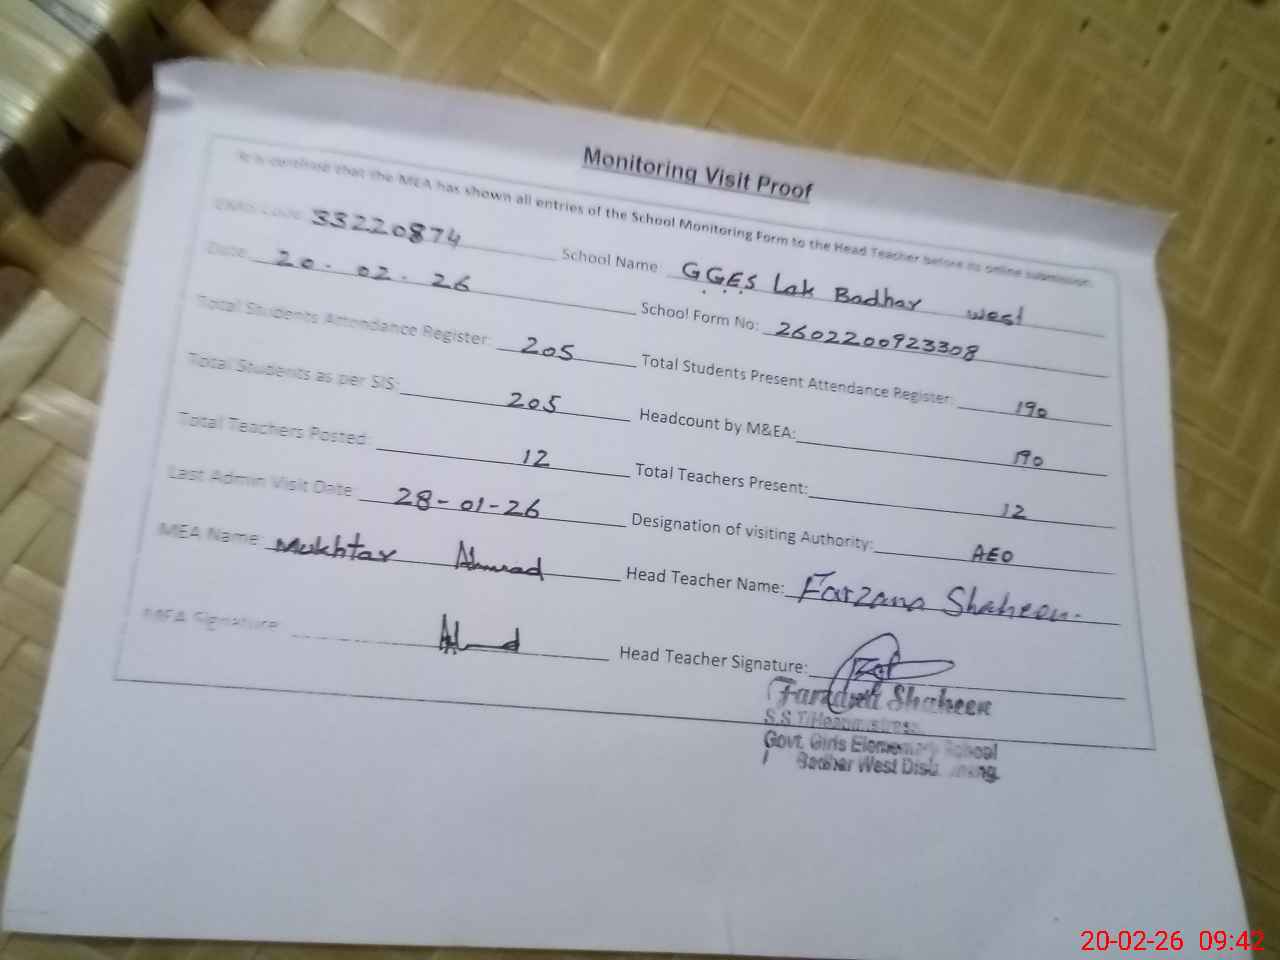 Monitoring Visit Proof
It is certified that the MEA has shown all entries of the School Monitoring Form to the Head Teacher before its online submission.
EMIS Code: 33220874 School Name: GGES Lak Badhar west
Date: 20.02.26 School Form No: 2602200923308
Total Students Attendance Register: 205 Total Students Present Attendance Register: 190
Total Students as per SIS: 205 Headcount by M&EA: 190
Total Teachers Posted: 12 Total Teachers Present: 12
Last Admin Visit Date: 28-01-26 Designation of visiting Authority: AEO
MEA Name: Mukhtar Ahmad Head Teacher Name: Farzana Shaheen.
MEA Signature: Head Teacher Signature:
Shaheen
S.S.T/Headmistress
Govt. Girls Elementary School
Badhar West Distt.
20-02-26 09:42